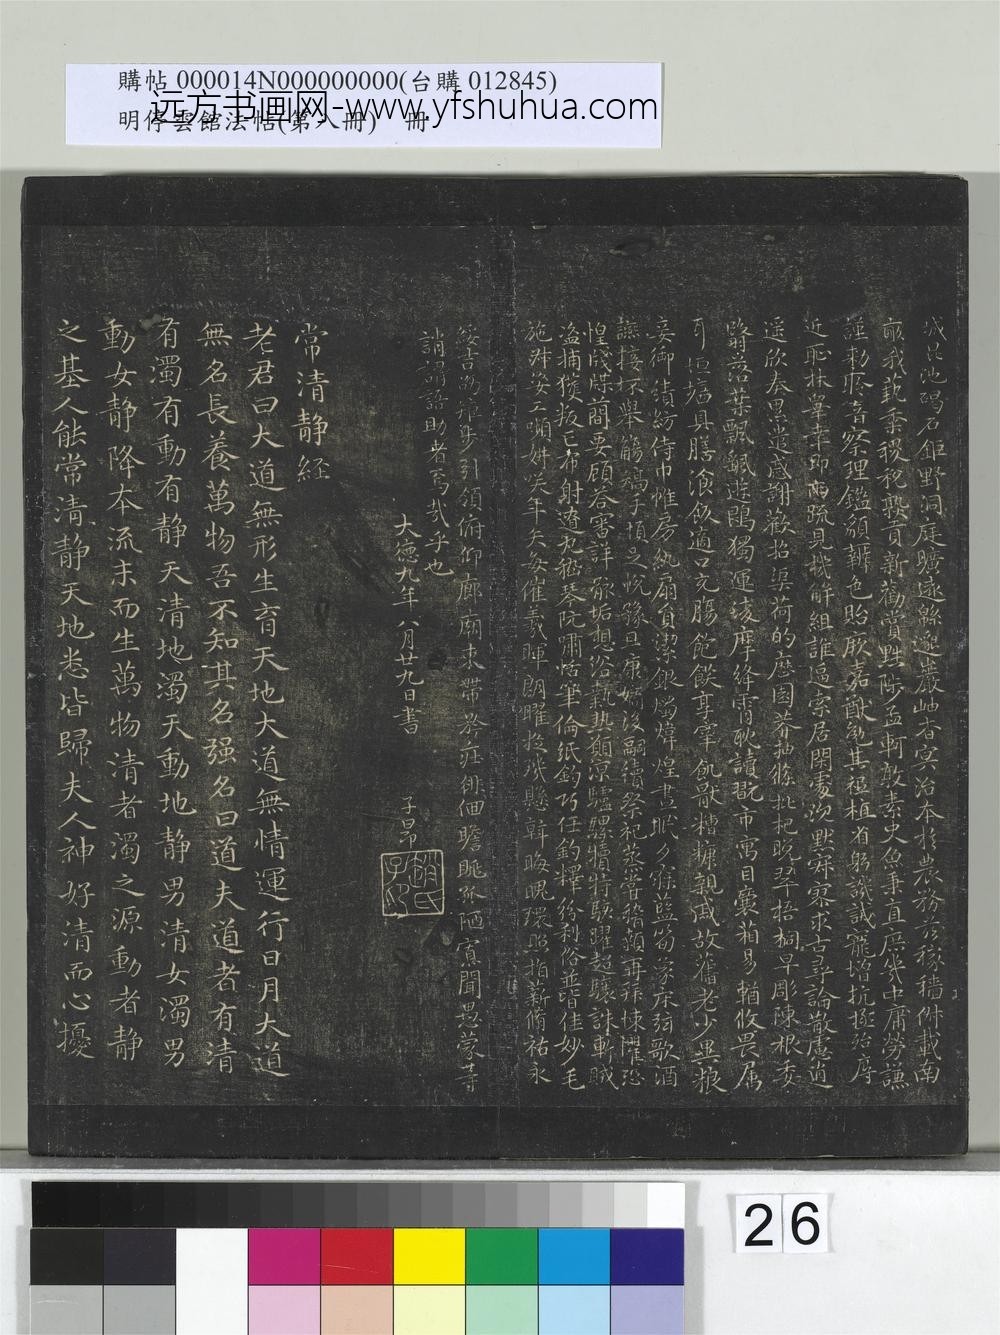 購帖 000014N000000000(台購 012845)
明停雲館法帖(第八冊) 冊
远方书画网-www.yfshuhua.com
城昆池碣石鉅野洞庭曠遠緜邈巖岫杳冥治本於農務茲稼穡俶載南
畝我藝黍稷稅熟貢新勸賞黜陟孟軻敦素史魚秉直庶幾中庸勞謙
謹勅聆音察理鑑貌辯色貽厥嘉猷勉其祗植省躬譏誡寵增抗極殆辱
近恥林皋幸即兩疏見機解組誰逼索居閑處沉默寂寥求古尋論散慮逍
遙欣奏累遣慼謝歡招渠荷的歷園莽抽條枇杷晚翠梧桐早彫陳根委
翳落葉飄飖遊鵾獨運凌摩絳霄耽讀翫市寓目囊箱易輶攸畏屬
耳垣墻具膳湌飯適口充腸飽飫享宰飢厭糟糠親戚故舊老少異粮
妾御績紡侍巾帷房紈扇員潔銀燭煒煌晝眠夕寐藍筍象床弦歌酒
讌接杯舉觴矯手頓足悅豫且康嫡後嗣續祭祀蒸嘗稽顙再拜悚懼恐
惶牋牒簡要顧答審詳骸垢想浴執熱願涼驢騾犢特駭躍超驤誅斬賊
盜捕獲叛亡布射遼丸嵇琴阮嘯恬筆倫紙鈞巧任釣釋紛利俗並皆佳妙毛
施淑姿工嚬妍笑年矢每催羲暉朗曜旋璣懸斡晦魄環照指薪脩祜永
綏吉劭矩步引領俯仰廊廟束帶矜莊徘佪瞻眺孤陋寡聞愚蒙等
誚謂語助者焉哉乎也
大德九年八月廿九日書 子昂
常清静経
老君曰大道無形生育天地大道無情運行日月大道
無名長養萬物吾不知其名强名曰道夫道者有清
有濁有動有静天清地濁天動地静男清女濁男
動女静降本流末而生萬物清者濁之源動者静
之基人能常清静天地悉皆歸夫人神好清而心擾
26